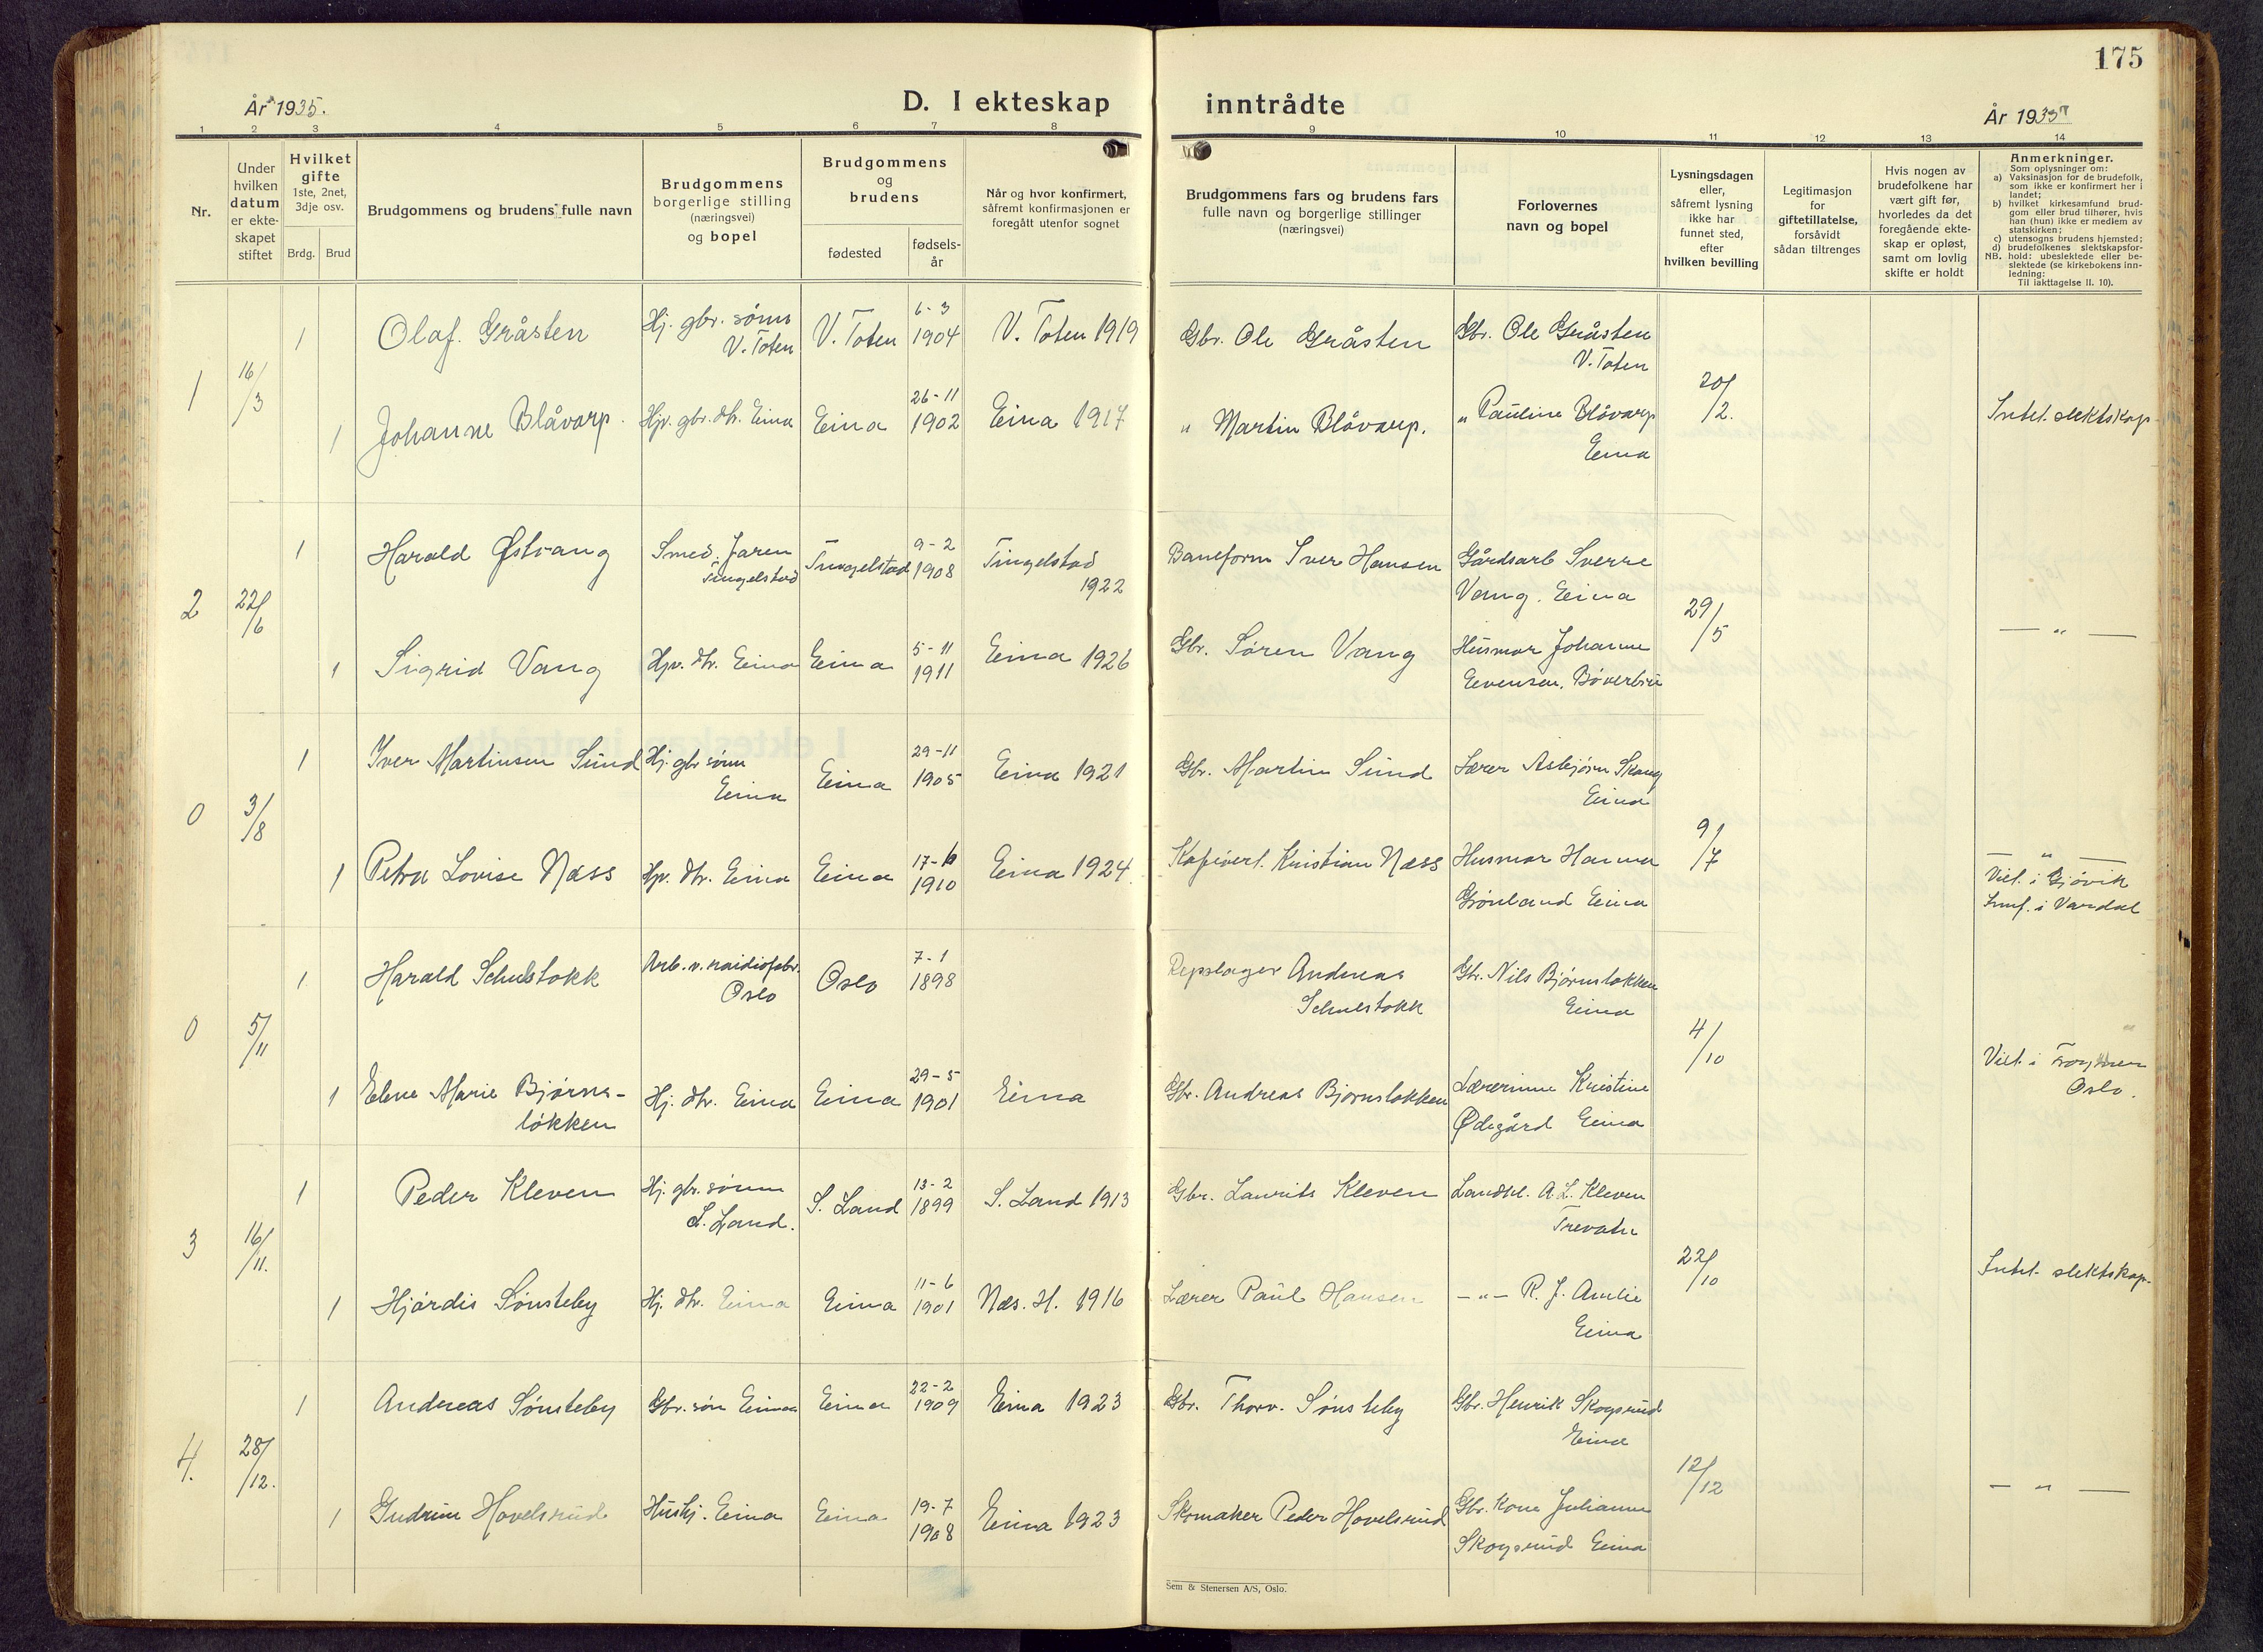 175
År 1935.
D. I ekteskap
inntrådte
År 1935
1 2 3 4 5 6 7 8 9 10 11 12 13 14
Nr.
Under
hvilken
datum
er ekte-
skapet
stiftet
Hvilket
gifte
1ste, 2net,
3dje osv.
Brdg. Brud
Brudgommens og brudens fulle navn
Brudgommens
borgerlige stilling
(næringsvei)
og bopel
Brudgommens
og
brudens
fødested
fødsels-
år
Når og hvor konfirmert,
såfremt konfirmasjonen er
foregått utenfor sognet
Brudgommens fars og brudens fars
fulle navn og borgerlige stillinger
(næringsvei)
Forlovernes
navn og bopel
Lysningsdagen
eller,
såfremt lysning
ikke har
funnet sted,
efter
hvilken bevilling
Legitimasjon
for
giftetillatelse,
forsåvidt
sådan tiltrenges
Hvis nogen av
brudefolkene har
vært gift før,
hvorledes da det
foregående ekte-
skap er opløst,
samt om lovlig
skifte er holdt
Anmerkninger.
Som oplysninger om:
a) Vaksinasjon for de brudefolk,
som ikke er konfirmert her i
landet;
b) hvilket kirkesamfund brud-
gom eller brud tilhører, hvis
han (hun) ikke er medlem av
statskirken;
c) utensogns brudens hjemsted;
d) brudefolkenes slektskapsfor-
hold: ubeslektede eller be-
slektede (se kirkebokens inn-
ledning:
NB.
Til iakttagelse II. 10).
1 16/3
1 Olaf. Gråsten Hj. gbr. sønn V. Toten V. Toten 6-3 1904 V. Toten 1919 Gbr. Ole Gråsten Gbr. Ole Gråsten V. Toten
20/2.
1 Johanne Blåvarp. Hjv. gbr. dtr. Eina Eina 26-11 1902 Eina 1917 " Martin Blåvarp. " Pauline Blåvarp Eina Intet slektskap
2 22/6
1 Harald Østvang Smed. Jaren Tingelstad Tingelstad 9-2 1908 Tingelstad 1922 Baneform Iver Hansen Gårdsarb Sverre Vang. Eina
29/5
1 Sigrid Vang Hjv. dtr. Eina Eina 5-11 1911 Eina 1926 Gbr. Søren Vang Husmor Johanne Evensen, Bøverbru — " —
0 3/8
1 Iver Martinsen Sund Hj. gbr sønn Eina Eina 29-11 1905 Eina 1921 Gbr. Martin Sund Lærer Asbjørn Skaug Eina
9/7
1 Petra Lovise Næss Hjv. dtr. Eina Eina 17-10 1910 Eina 1924. Kafévert. Kristian Næss Husmor Hanna Grønland Eina — " —
Viet. i Gjøvik
i Vardal
0 5/11
1 Harald Schulstokk Arb. v. raidiofabr. Oslo Oslo 7-1 1898 Repslager Andreas Schulstokk Gbr. Nils Bjørnsløkken Eina
4/10
1 Elene Marie Bjørns-
løkken Hj. dtr. Eina Eina 29-5 1901 Eina Gbr. Andreas Bjørnsløkken Lærerinne Kristine Ødegård Eina Viet. i
Oslo.
3 16/11.
1 Peder Kleven Hj. gbr. sønn S. Land. S. Land 13-2 1899 S. Land 1913 Gbr. Laurits Kleven Landhl. A. L. Kleven Trevatn
22/10
1 Hjördis Sønsteby Hj. dtr. Eina Eina 11-6 1901 Næs. H. 1916 Lærer Paul Hansen — " — R. J. Amlie Eina Intet slektskap.
4. 28/12.
1 Andreas Sønsteby Gbr. søn Eina Eina 22-2 1909 Eina 1923 Gbr. Thorv. Sønsteby Gbr. Henrik Skogsrud Eina
12/12
1 Gudrun Hovelsrud Hushj. Eina Eina 19-7 1908 Eina 1923 Skomaker Peder Hovelsrud Gbr. kone Julianne Skogsrud Eina — " —
Sem & Stenersen A/S, Oslo.